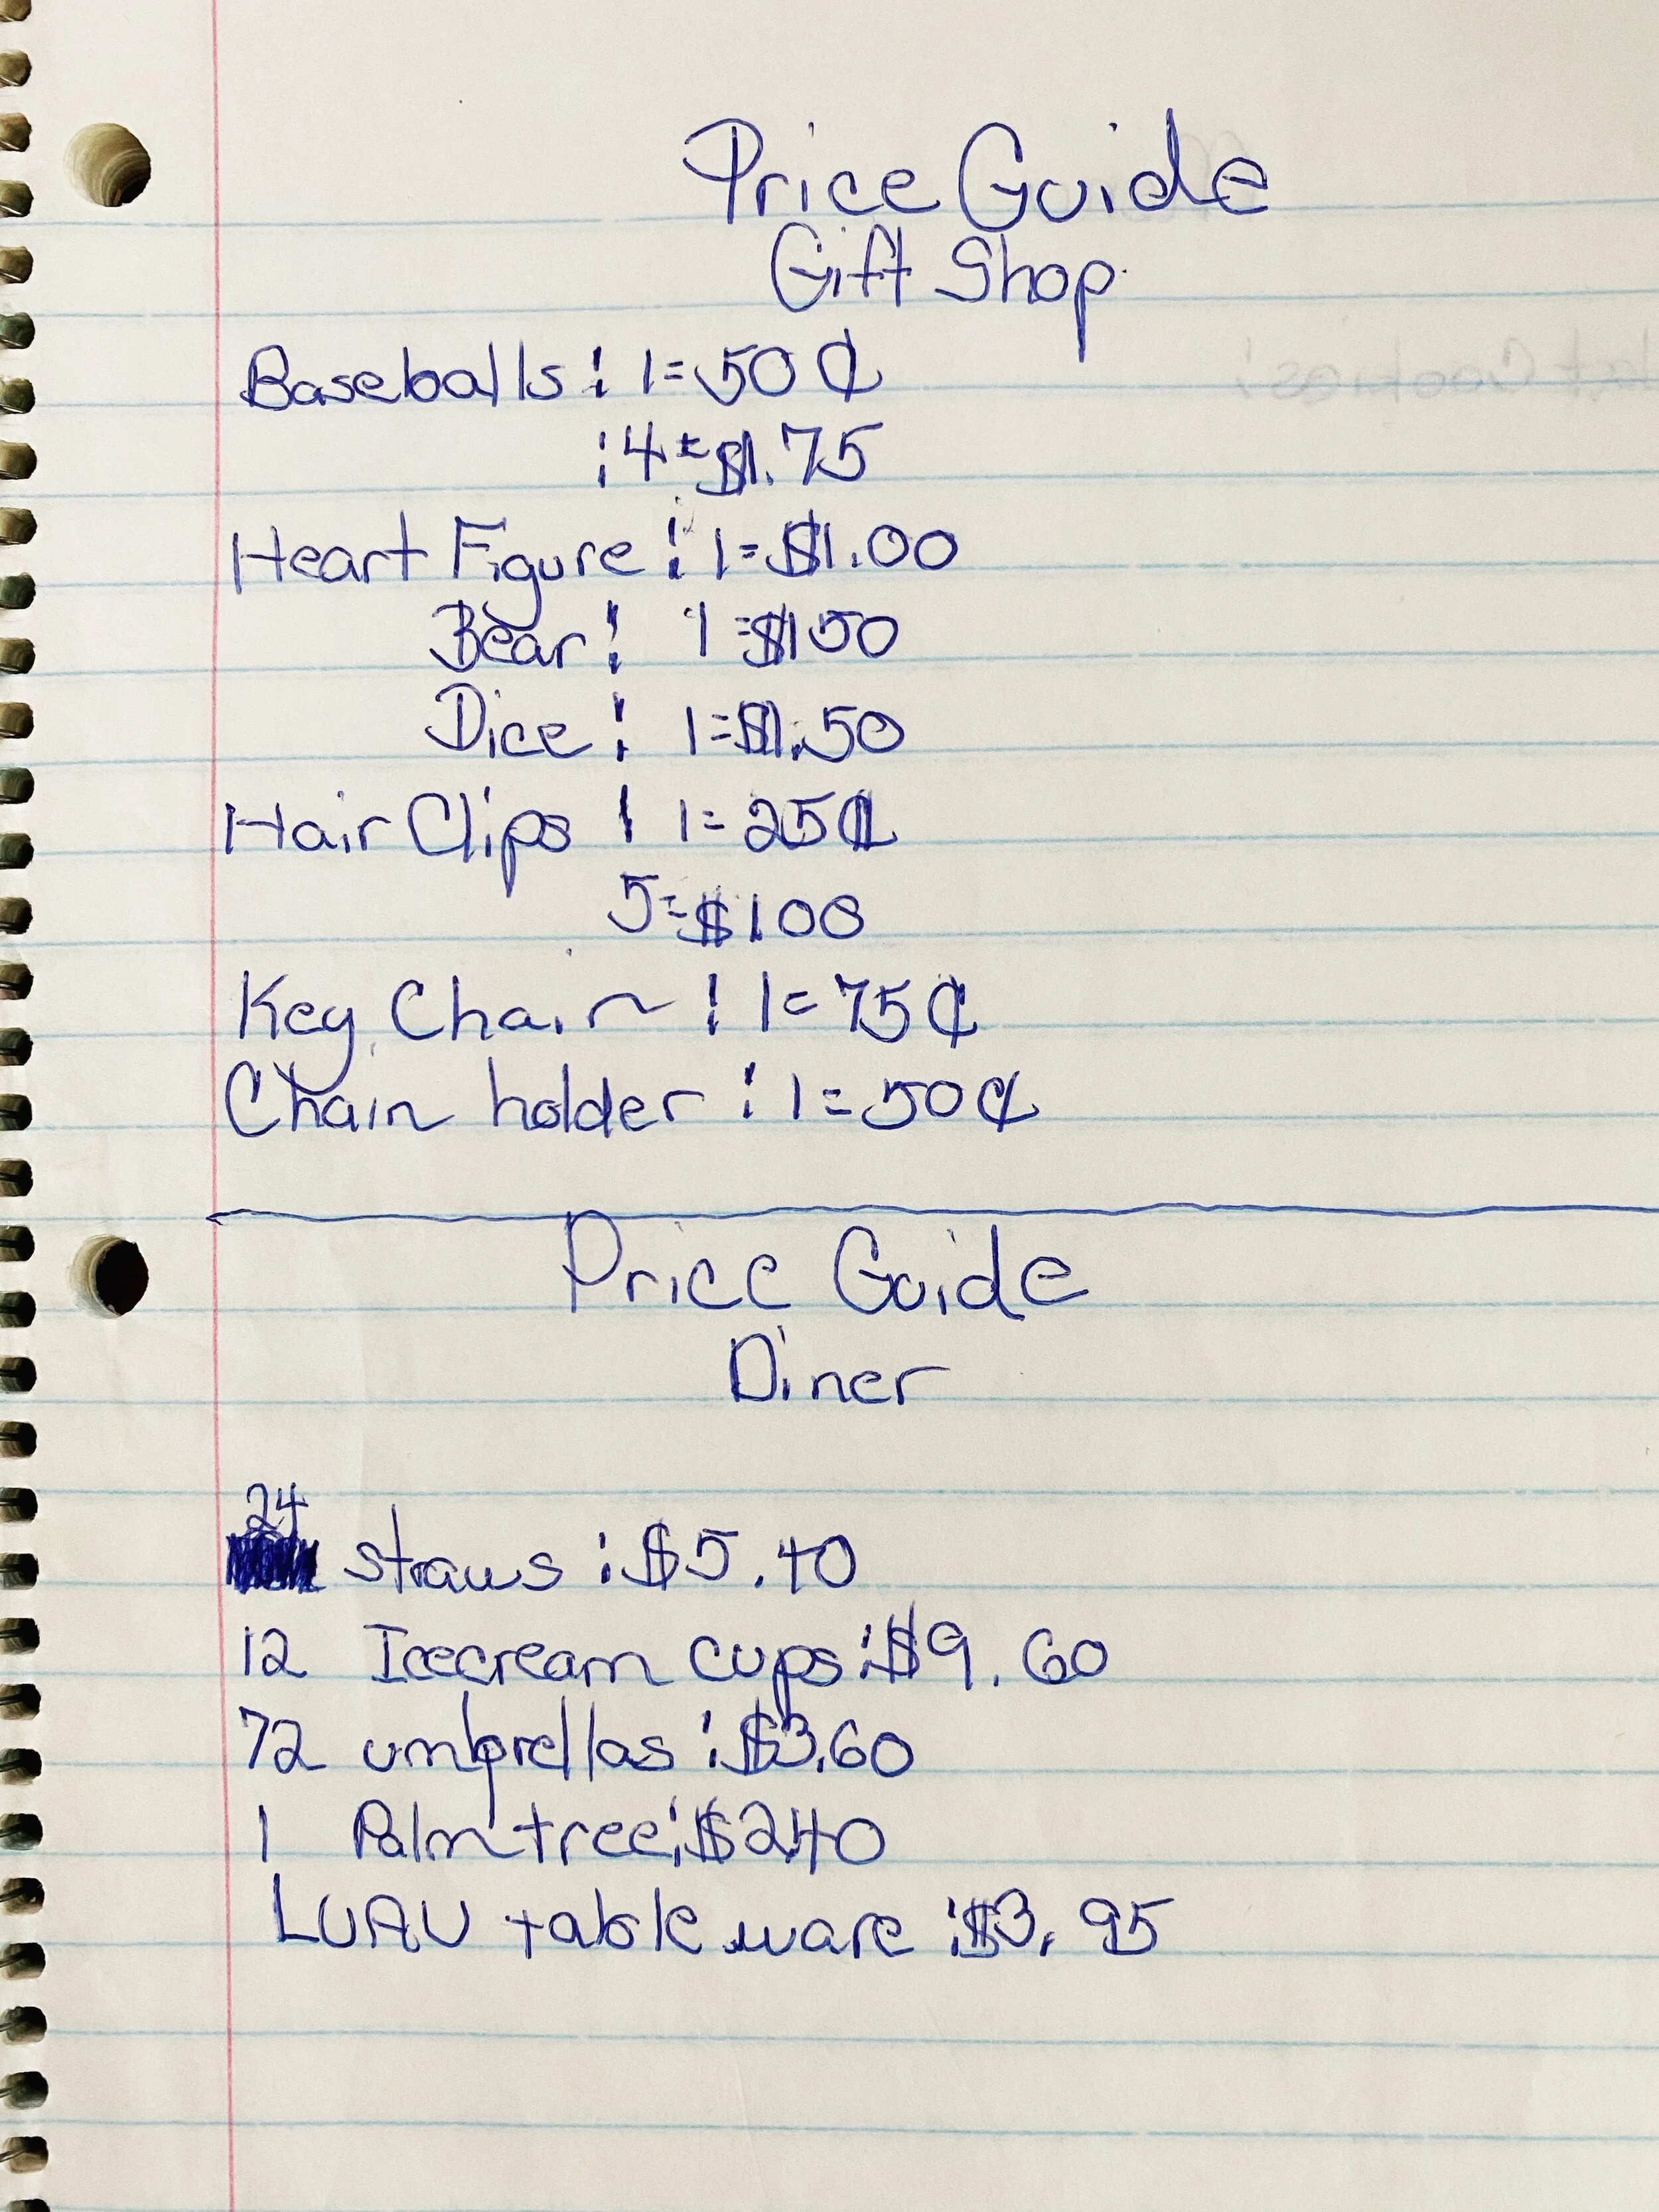 Price Guide
Gift Shop
Baseballs : 1=50¢
: 4=$1.75
Heart Figure : 1=$1.00
Bear : 1=$150
Dice : 1=$1.50
Hair Clips : 1=25¢
5=$100
Key Chain : 1=75¢
Chain holder : 1=50¢
Price Guide
Diner
24
straws : $5.40
12 Icecream cups : $9.60
72 umbrellas : $3.60
1 Palm tree : $2.40
LUAU table ware : $3.95